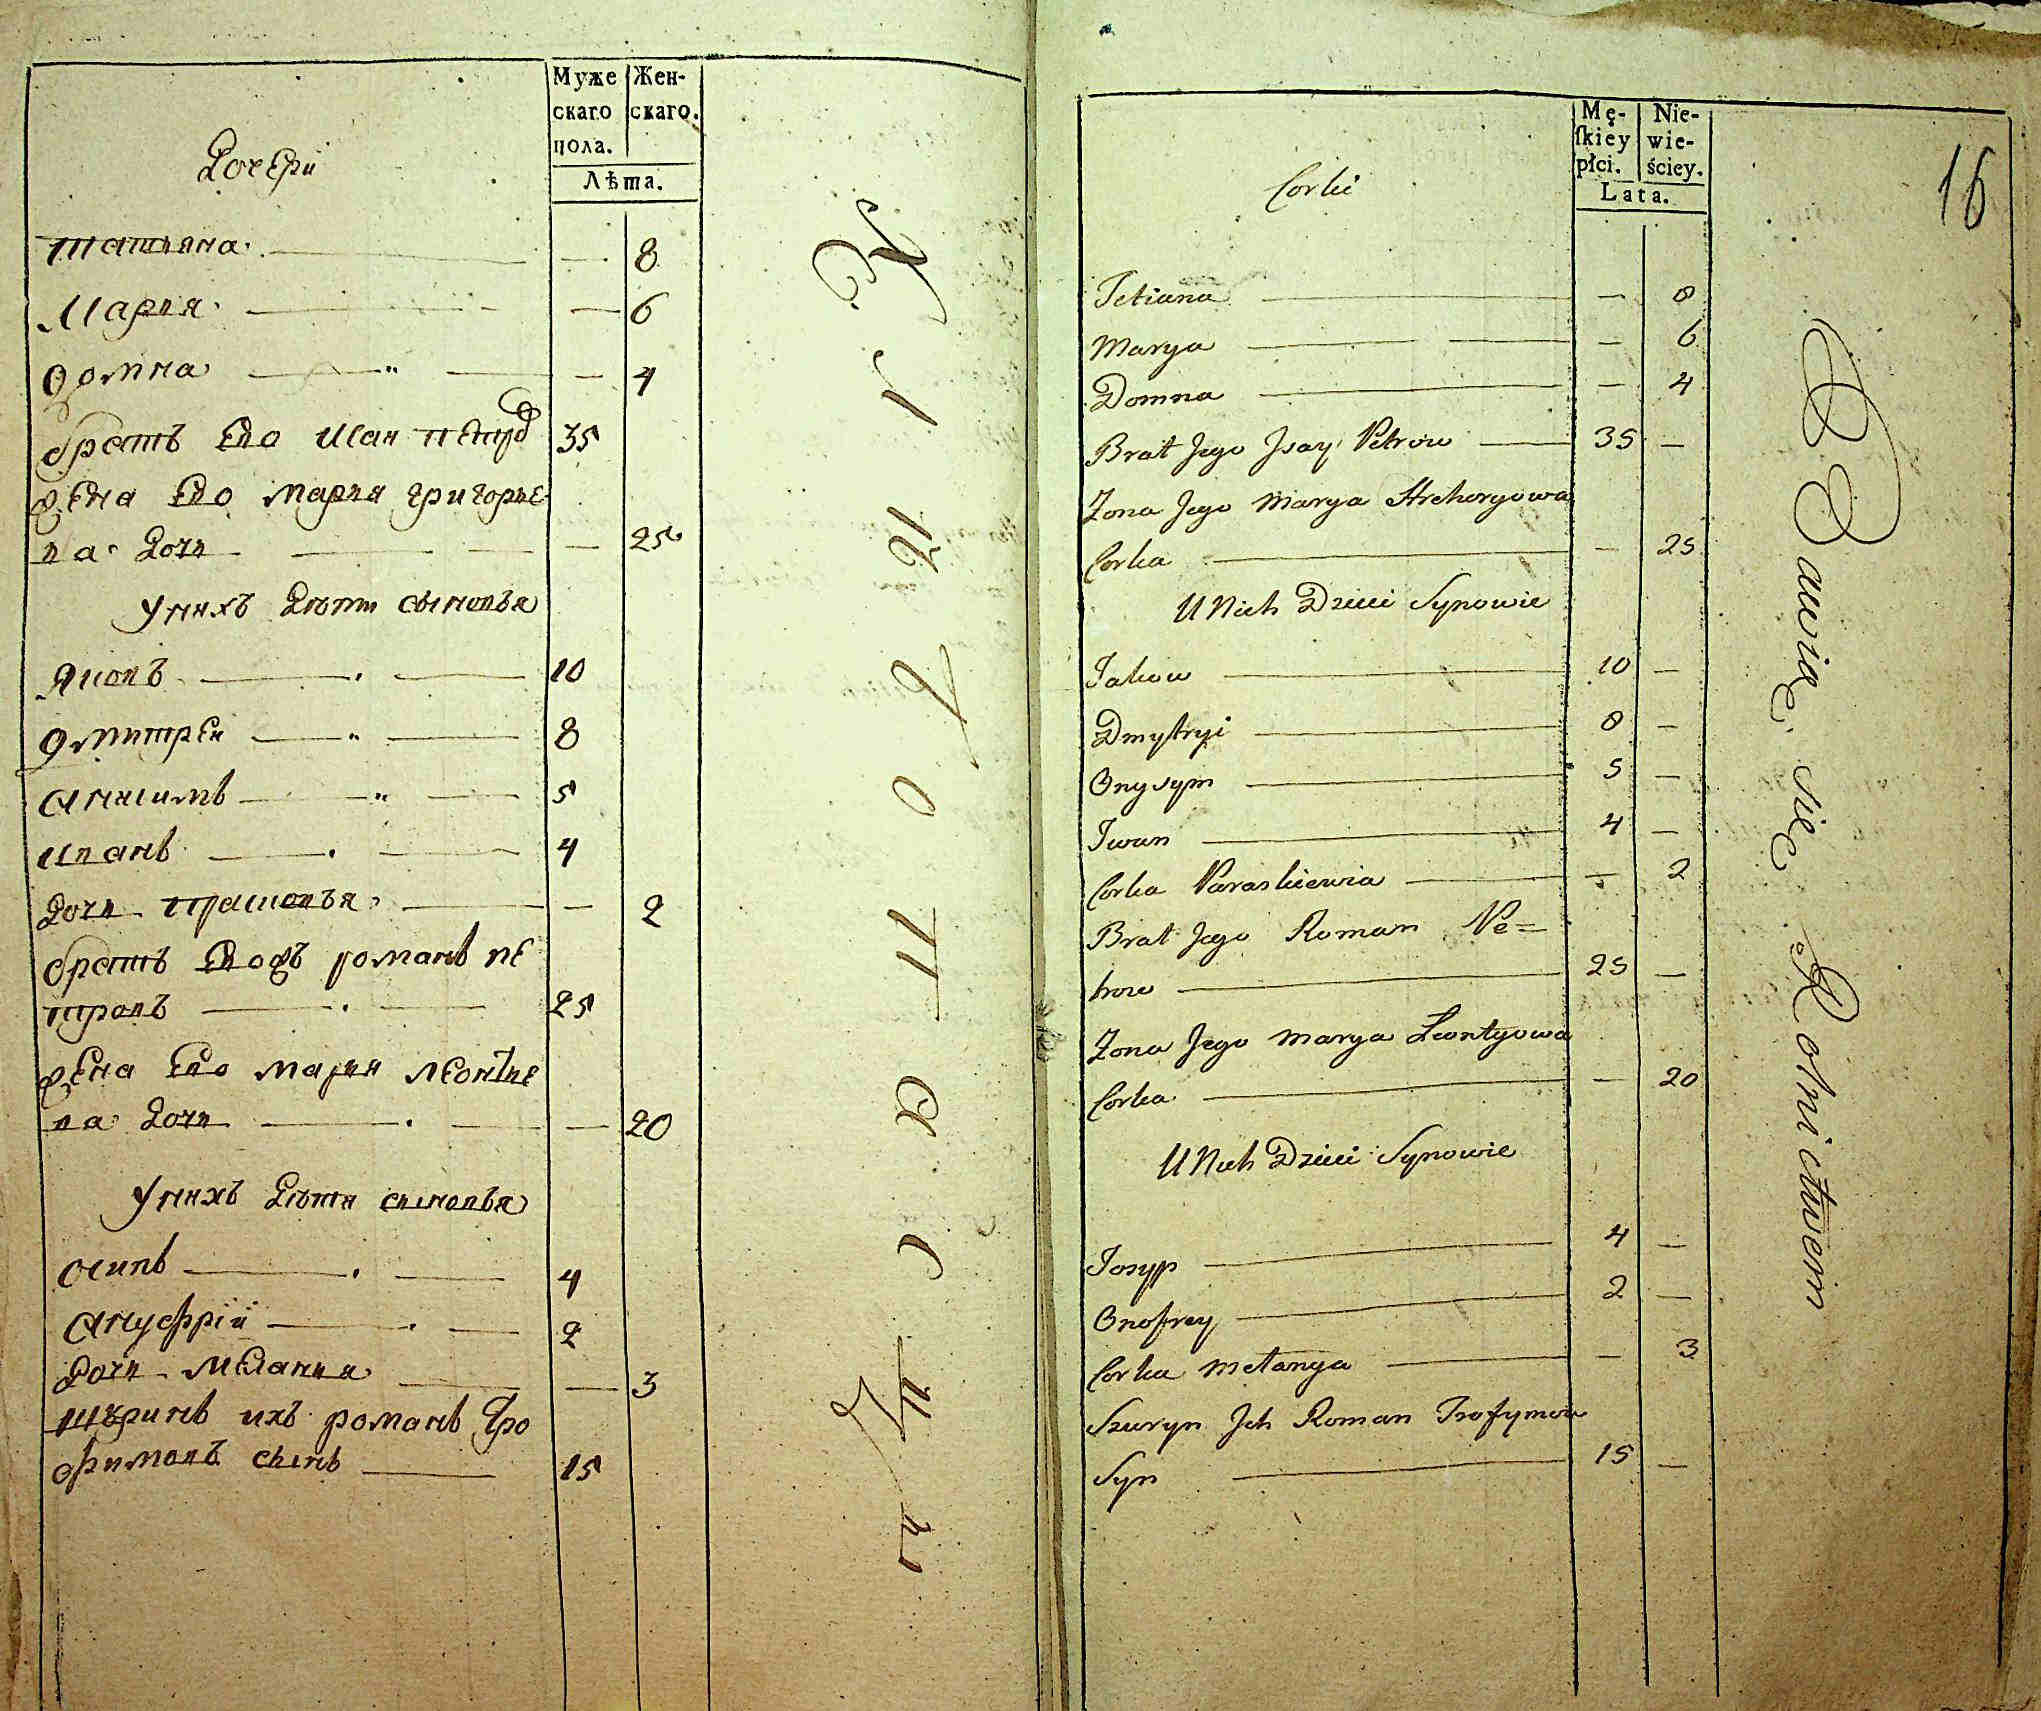 Муже
скаго
пола.
Жен-
скаго.
Лѣта.
Дочери
татьяна 8
Мария 6
Домна 4
братъ Ево Исаи петро 35
жена Ево мария григорье
ва дочь 25
у нихъ дѣти сыновья
Яковъ 10
Дмитреи 8
Анисимъ 5
иванъ 4
дочь прасковья 2
братъ Евожъ романъ пе
тровъ 25
жена Ево мария леонтье
ва дочь 20
у нихъ дѣти сыновья
осипъ 4
Ануфріи 2
дочь Меланья 3
шуринъ ихъ романъ тро
фимовъ сынъ 15
16
Mę-
ſkiey
płci.
Nie-
wie-
ściey.
Lata.
Corki
Tetiana 8
Marya 6
Domna 4
Brat Jego Jsay Petrow 35
Zona Jego Marya Hrehoryowa
Corka 25
U Nich Dzieci Synowie
Jakow 10
Dmytryi 8
Onysym 5
Jwan 4
Corka Paraskiewia 2
Brat Jego Roman Pe=
trow 25
Zona Jego Marya Leontyowa
Corka 20
U Nich Dzieci Synowie
Josyp 4
Onofrey 2
Corka Melanya 3
Szuryn Jch Roman Trofymow
Syn 15
Bawią się Rolnictwem